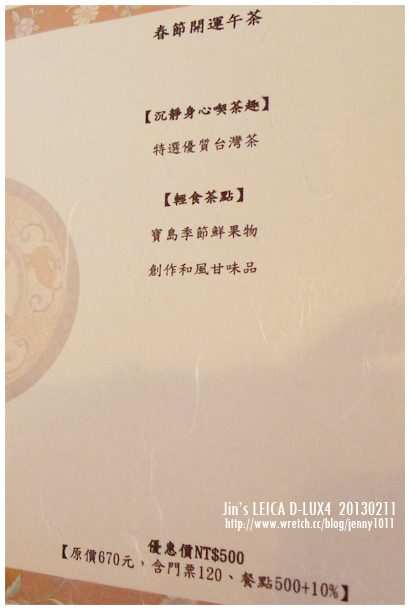 春節開運午茶
【沉靜身心喫茶趣】
特選優質台灣茶
【輕食茶點】
寶島季節鮮果物
創作和風甘味品
Jin's LEICA D-LUX4 20130211
http://www.wretch.cc/blog/jenny1011
優惠價NT$500
【原價670元，含門票120、餐點500+10%】